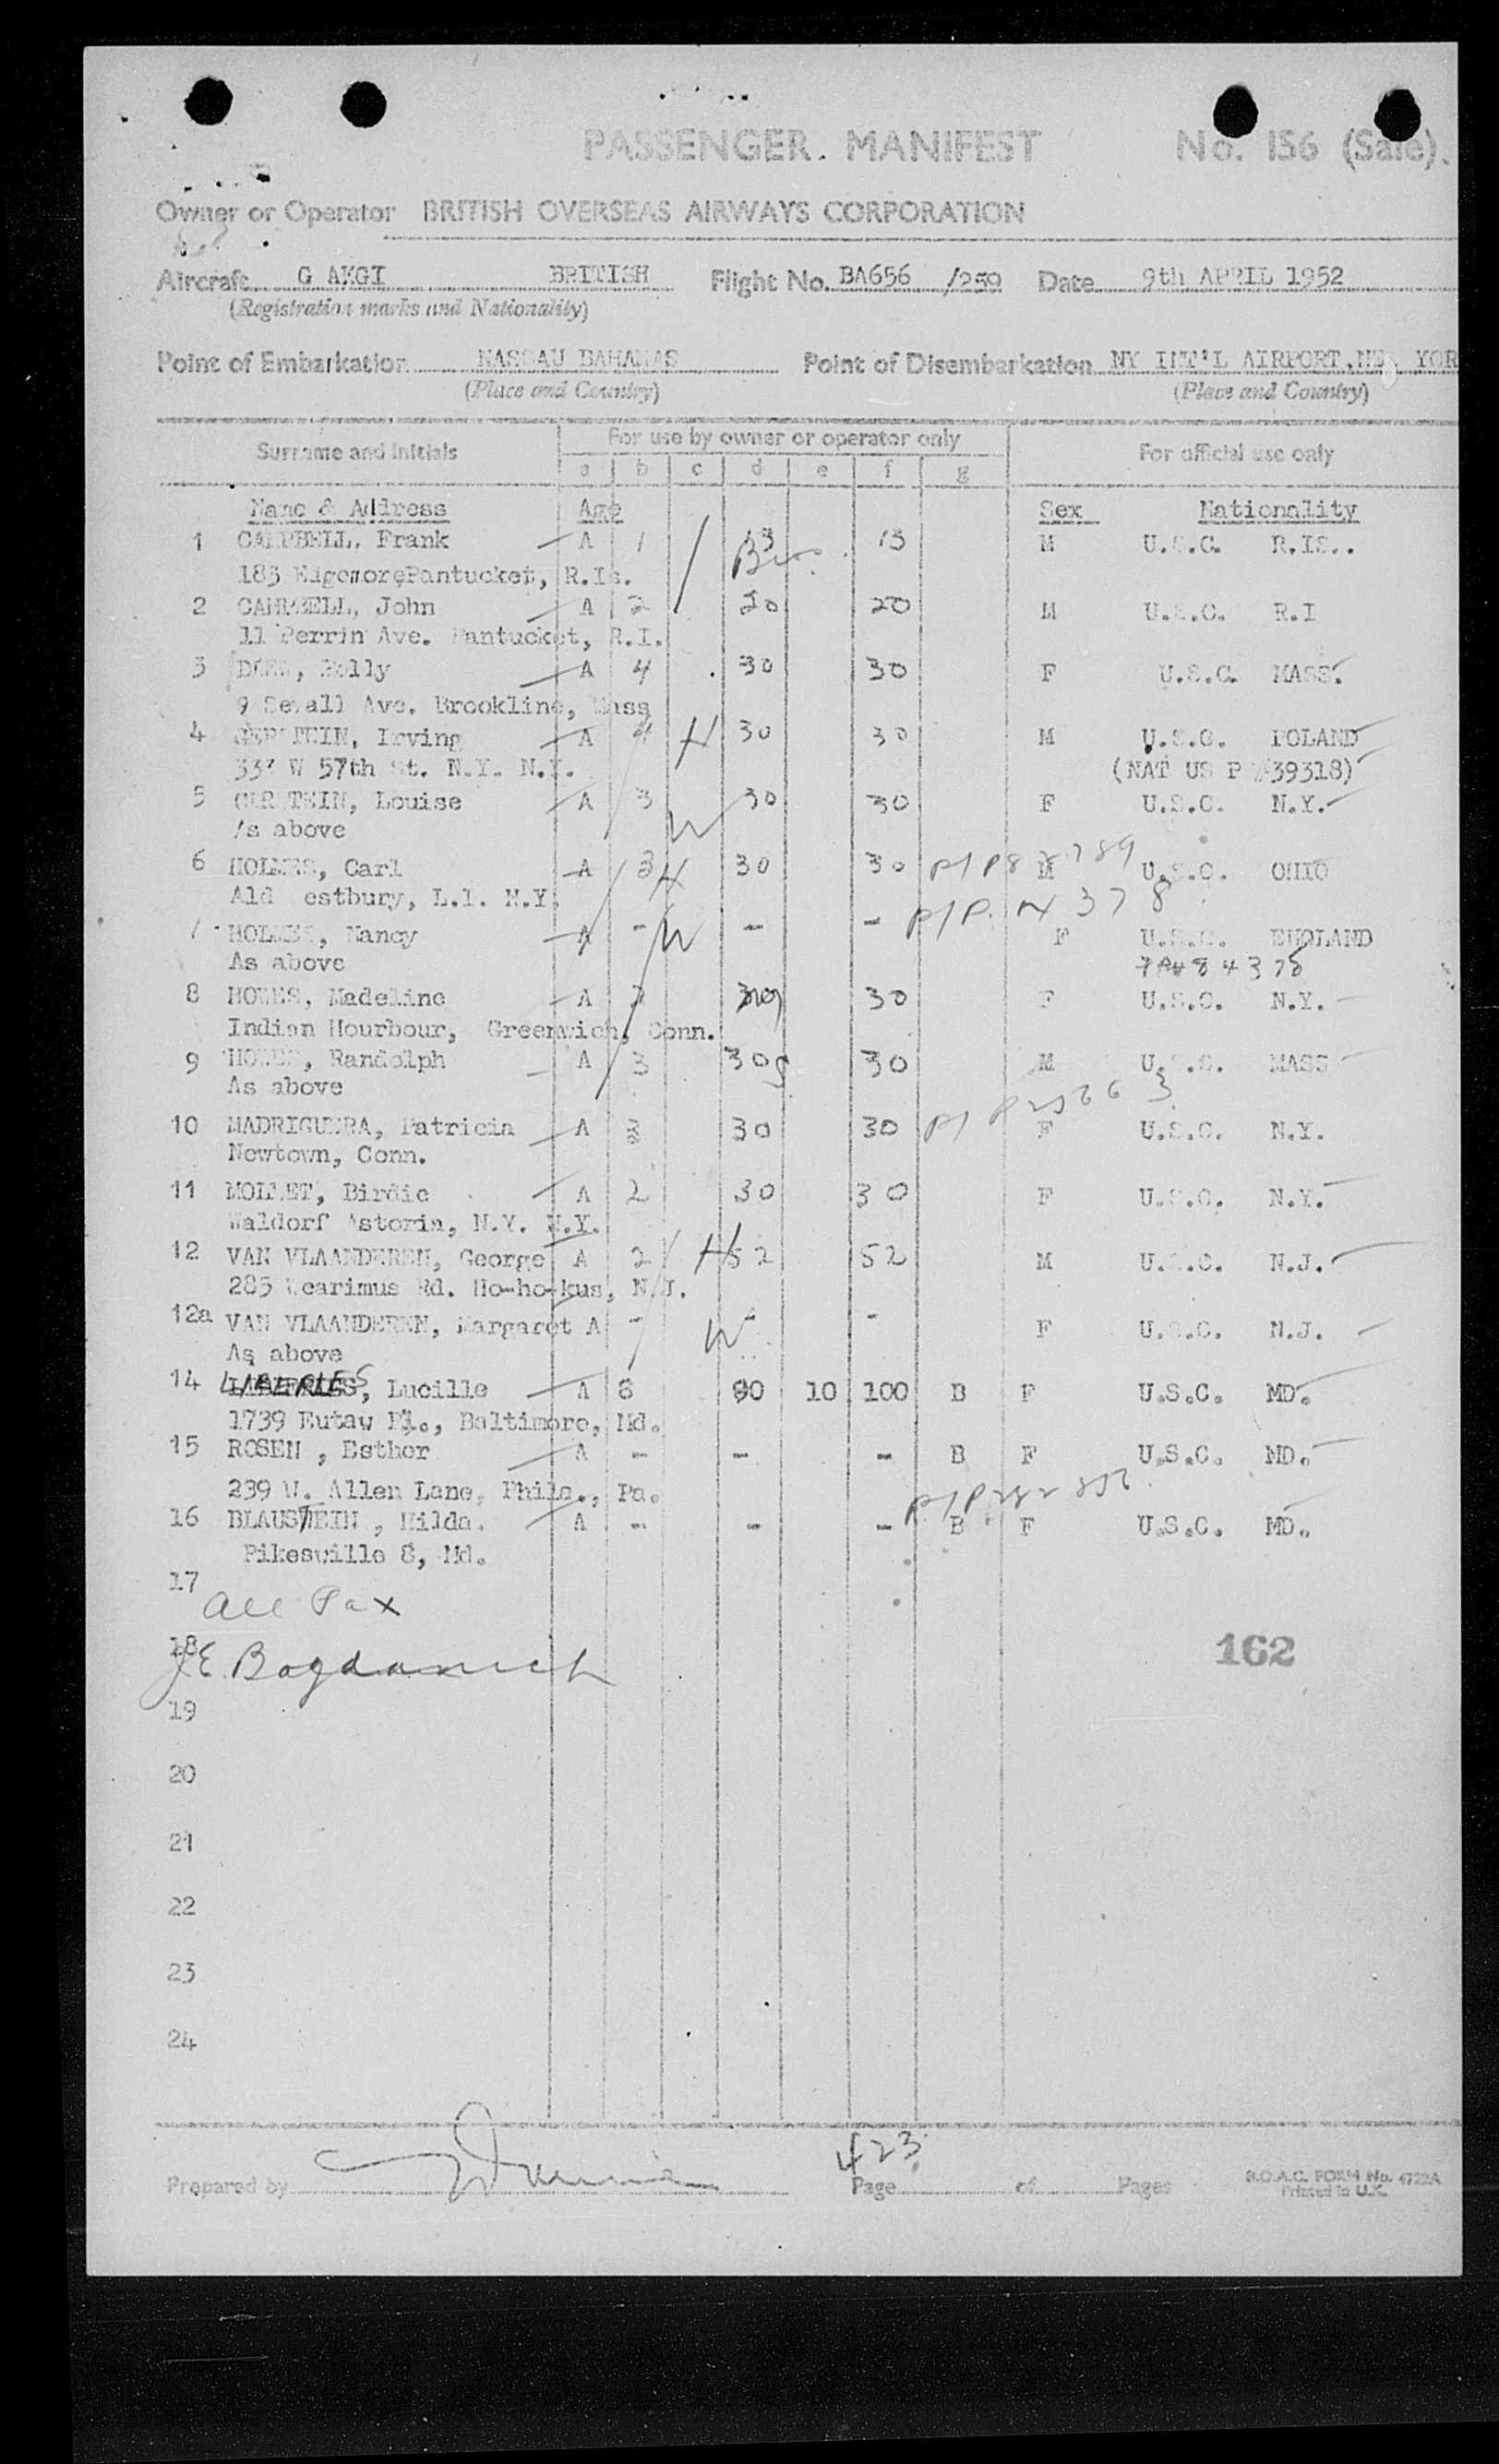 PASSENGER MANIFEST No. 156 (Sale).
Owner or Operator BRITISH OVERSEAS AIRWAYS CORPORATION
Aircraft G AKGI BRITISH Flight No. BA656 /259 Date 9th APRIL 1952
(Registration marks and Nationality)
Point of Embarkation NASSAU BAHAMAS Point of Disembarkation NY INT'L AIRPORT, YOR
(Place and Country) (Place and Country)
Surname and Initials For use by owner or operator only For official use only
a b c d e f g
Name & Address Age Sex Nationality
1 CAMPBELL, Frank A 1 13 13 M U.S.C. R.IS..
183 Pantucket, R.Is.
2 CAMPBELL, John A 2 20 20 M U.S.C. R.I
11 Perrin Ave. Pantucket, R.I.
3 A 4 30 30 F U.S.C. MASS.
9 Sewall Ave. Brookline, Mass
4 GERSTEIN, Irving A 4 H 30 30 M U.S.C. POLAND
W 57th St. N.Y. N.Y. (NAT US P 39318)
5 GERSTEIN, Louise A 3 W 30 30 F U.S.C. N.Y.
As above
6 HOLMES, Carl A 3 H 30 30 M U.S.C. OHIO
Ald estbury, L.I. N.Y.
7 HOLMES, Nancy A - W - - F U.S.C. ENGLAND
As above
8 HOWES, Madeline A 30 30 F U.S.C. N.Y.
Indian Hourbour, Greenwich, Conn.
9 HOWES, Randolph A 3 30 30 M U.S.C. MASS
As above
10 MADRIGUERA, Patricia A 3 30 30 F U.S.C. N.Y.
Newtown, Conn.
11 Birdie A 2 30 30 F U.S.C. N.Y.
Waldorf Astoria, N.Y. N.Y.
12 VAN VLAANDEREN, George A 2 H 52 52 M U.S.C. N.J.
285 Wearimus Rd. Ho-ho-kus, N.J.
12a VAN VLAANDEREN, Margaret A - W - - F U.S.C. N.J.
As above
14 Lucille A 8 90 10 100 B F U.S.C. MD.
1739 Eutaw Pl., Baltimore, Md.
15 ROSEN , Esther A - - - B F U.S.C. MD.
239 W. Allen Lane, Phila., Pa.
16 BLAUSTEIN , Hilda. A - - - B F U.S.C. MD.
Pikesville 8, Md.
17
All Pax
18
J.E. Bogdanich
162
19
20
21
22
23
24
423
Prepared by Page of Pages B.O.A.C. FORM No. 4722A
Printed in U.K.